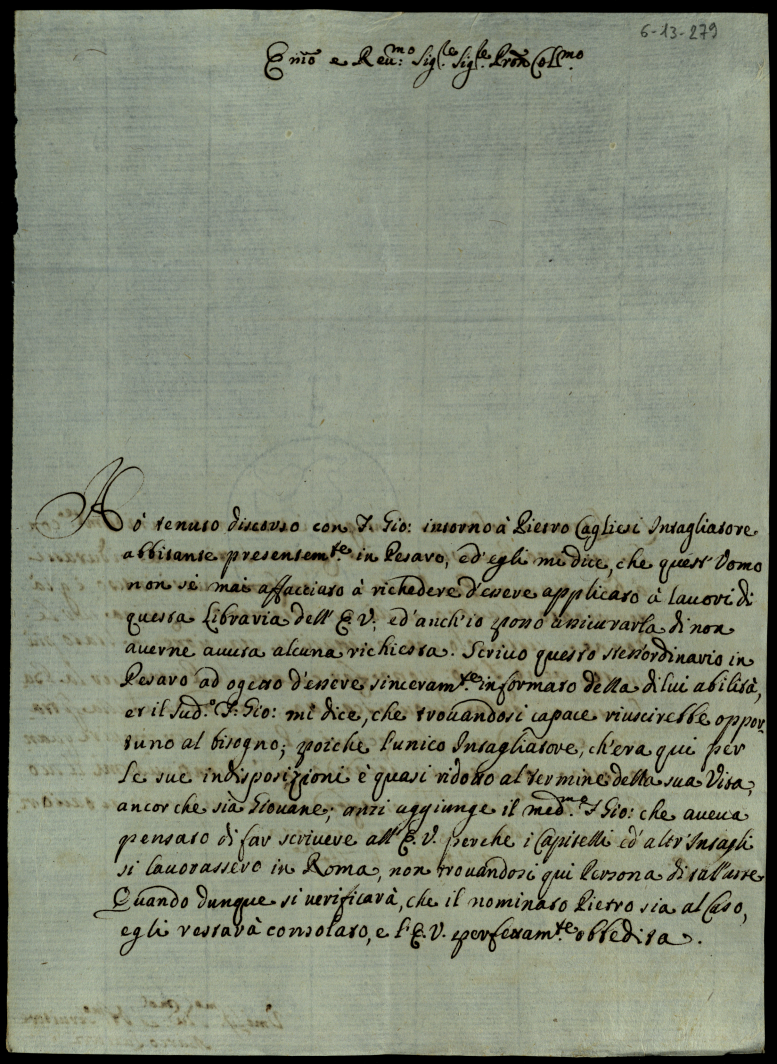 6-13-279
Em̃o e Reu:mo Sig:re Sig:re Pron Coll:mo
Hò tenuto discorso con F. Gio: intorno à Pietro Cagliesi Intagliatore
abbitante presentem:te in Pesaro, ed'egli mi dice, che quest'Uomo
non sè mai affacciato à richiedere d'essere applicato à lauori di
questa Libraria dell'E. V; ed'anch'io posso assicurarla di non
auerne auuta alcuna richiesta. Scriuo questo stess'ordinario in
Pesaro ad ogetto d'essere sinceram:te informato della di lui abilità,
et il Sud:o F: Gio: mi dice, che trouandosi capace riuscirebbe oppor-
tuno al bisogno; poiche l'unico Intagliatore, ch'era qui per
le sue indisposizioni è quasi ridotto al termine della sua Vita,
ancor che sia Giouane; anzi aggiunge il med:mo F Gio: che aueua
pensato di far scriuere all'E. V. perche i Capitelli ed'altr'Intagli
si lauorassero in Roma, non trouandosi qui Persona di tall'arte
Quando dunque si verificarà, che il nominato Pietro sia al Caso,
egli restarà consolato, e l'E. V. perfettam:te obbedita.